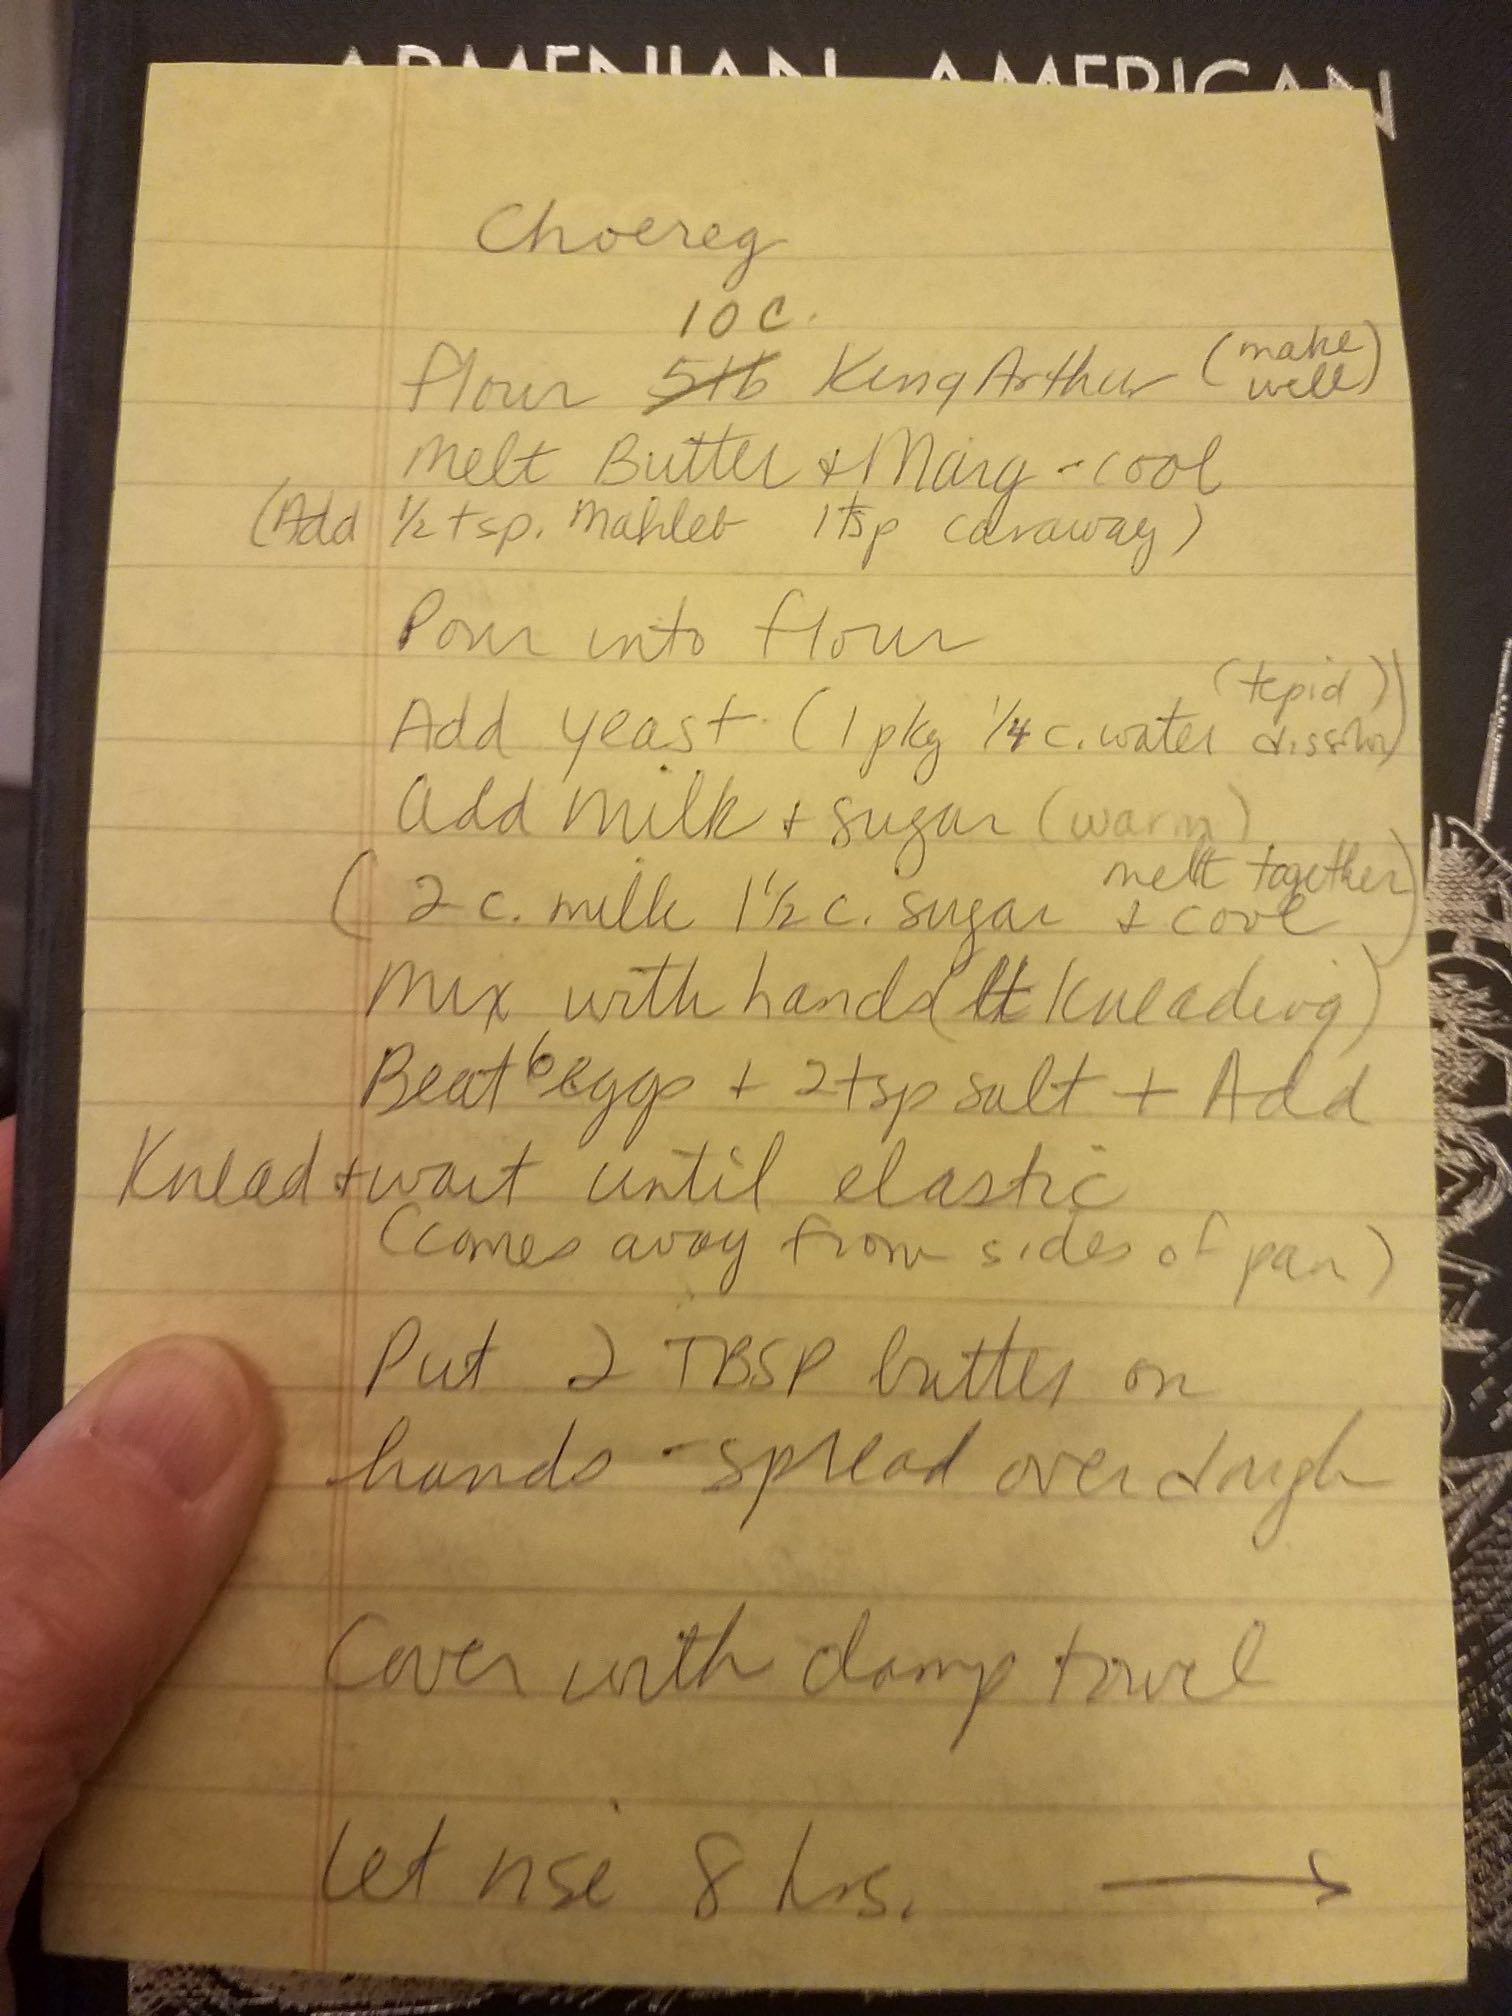 ARMENIAN AMERICAN
Choereg
10 C.
flour 5lb King Arthur (make well)
Melt Butter + Marg - cool
(Add 1/2 tsp. Mahleb 1 tsp caraway)
Pour into flour
(tepid)
Add yeast (1 pkg 1/4 c. water dissolve)
Add milk + sugar (warm)
melt together
(2 c. milk 1 1/2 c. sugar & cool)
Mix with hands (lt kneading)
Beat 6 eggs + 2 tsp salt + Add
Knead + wait until elastic
(comes away from sides of pan)
Put 2 TBSP butter on
hands - spread over dough
Cover with damp towel
Let rise 8 hrs. →